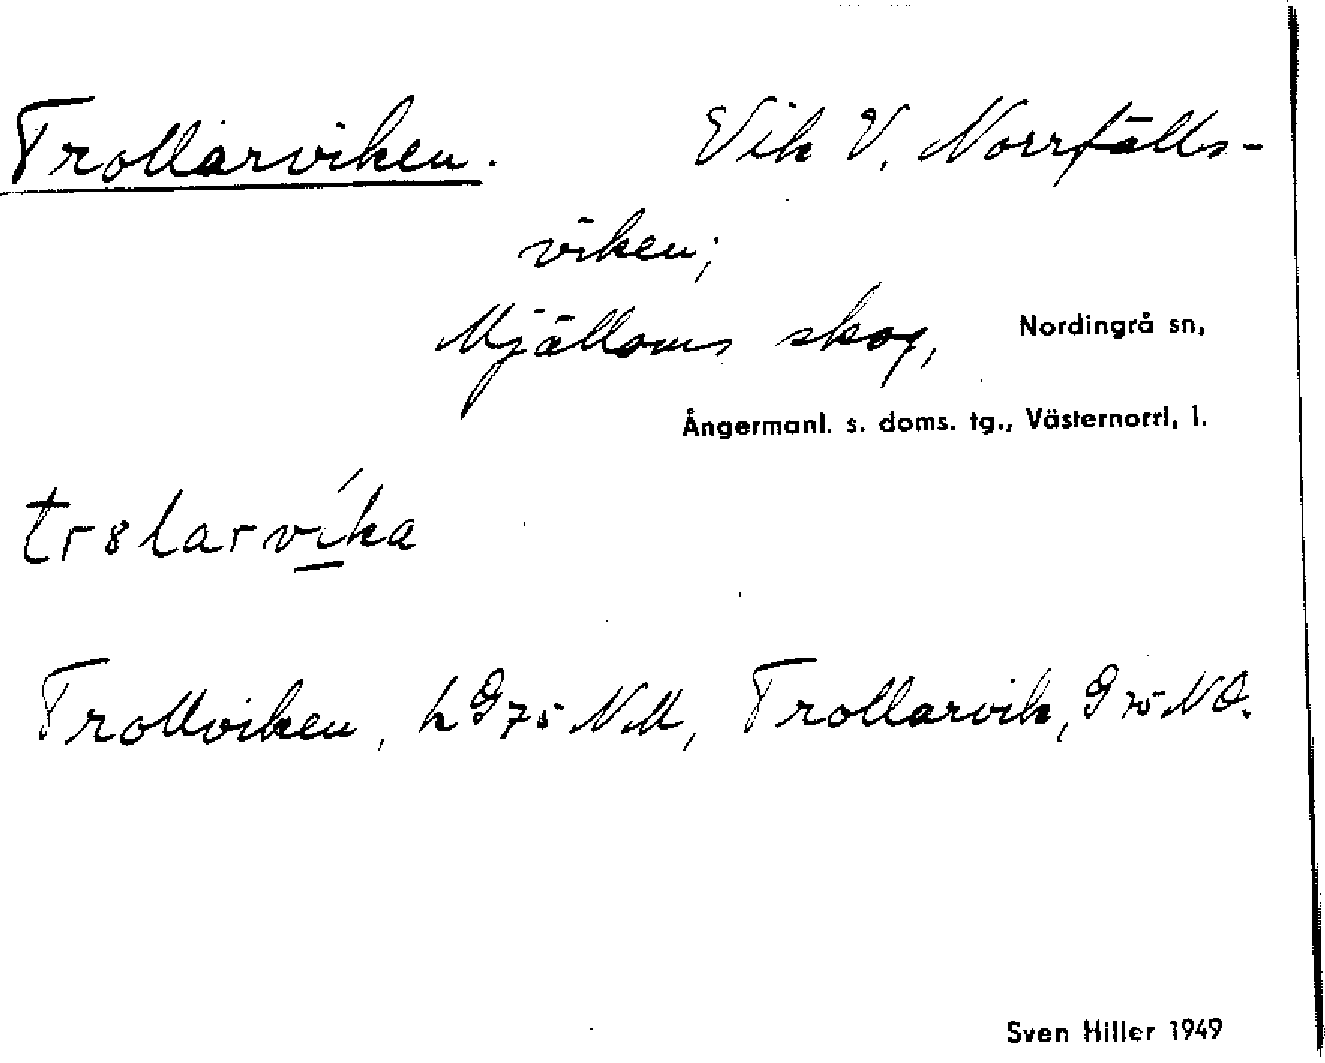 Trollarviken. Vik V. Norrfälls-
viken;
Mjälloms skog, Nordingrå sn,
Ångermanl. s. doms. tg., Västernorrl. l.
tr8larvíka
Trollviken, Trollarvik,
Sven Hiller 1949